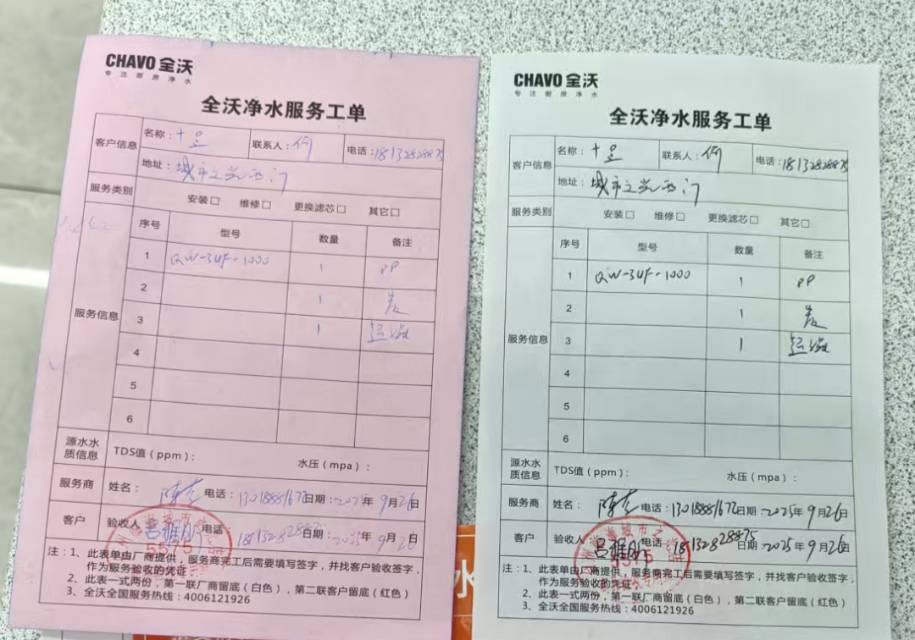 CHAVO 全沃
专注厨房净水
全沃净水服务工单
客户信息
名称：十足
联系人：何
电话：18132828875
地址：城市之光西门
服务类别
安装□ 维修□ 更换滤芯□ 其它□
服务信息
序号 型号 数量 备注
1 QW-3UF-1000 1 PP
2 1 炭
3 1 超滤
4
5
6
源水水质信息
TDS值（ppm）： 水压（mpa）：
服务商 姓名： 电话： 日期：2025年9月26日
客户 验收人 电话 18132828875 日期 2025年9月26日
5375
注：1、此表单由厂商提供，服务商完工后需要填写签字，并找客户验收签字，
作为服务验收的凭证；
2、此表一式两份，第一联厂商留底（白色），第二联客户留底（红色）
3、全沃全国服务热线：4006121926
CHAVO 全沃
专注厨房净水
全沃净水服务工单
客户信息
名称：十足
联系人：何
电话：18132828875
地址：城市之光西门
服务类别
安装□ 维修□ 更换滤芯□ 其它□
服务信息
序号 型号 数量 备注
1 QW-3UF-1000 1 PP
2 1 炭
3 1 超滤
4
5
6
源水水质信息
TDS值（ppm）： 水压（mpa）：
服务商 姓名： 电话： 日期：2025年9月26日
客户 验收人 电话 18132828875 日期 2025年9月26日
5375
注：1、此表单由厂商提供，服务商完工后需要填写签字，并找客户验收签字，
作为服务验收的凭证；
2、此表一式两份，第一联厂商留底（白色），第二联客户留底（红色）
3、全沃全国服务热线：4006121926
水